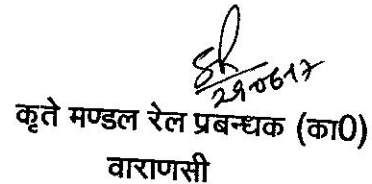 290617
कृते मण्डल रेल प्रबन्धक (का0)
वाराणसी